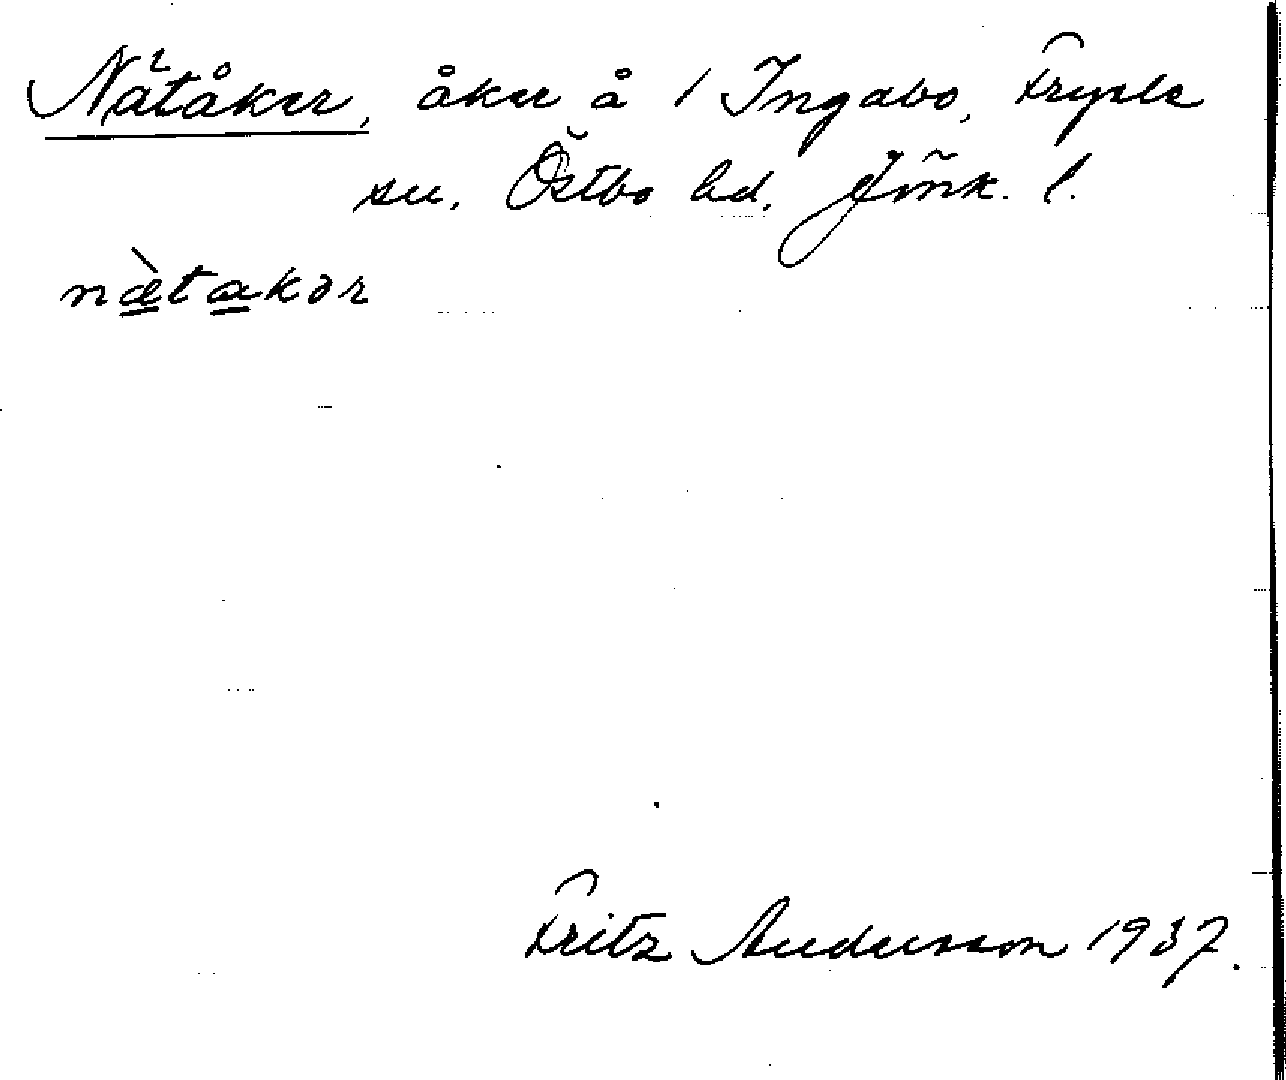 Nätåker, åker å 1 Ingabo, Fryele
sn. Östbo hd. Jönk. l.
nætakər
Fritz Andersson 1937.